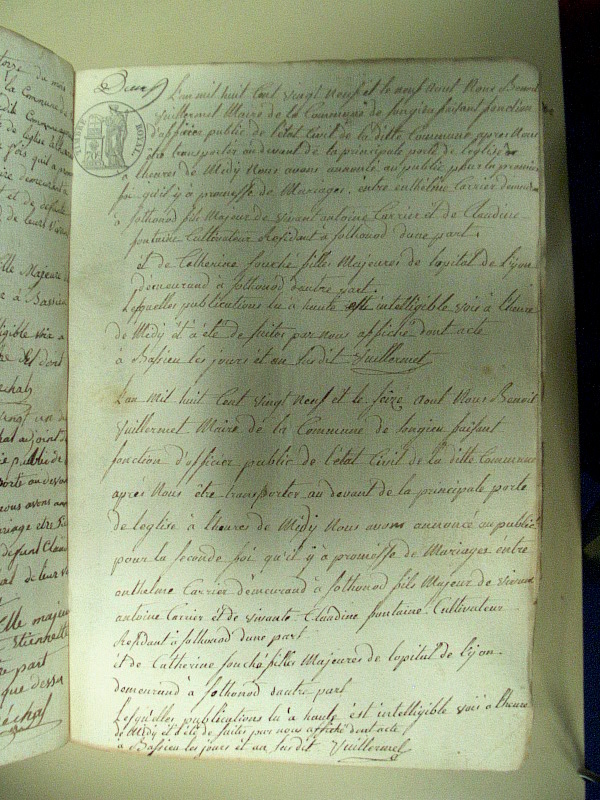 toire du mois
la Commune de
de leglise
demeurant
Deux
TIMBRE ROYAL
L'an mil huit Cent vingt Neuf et le neuf Aout Nous Benoit
Vuillermet Maire de la Commune de songieu faisant fonction
d'officier public de l'état Civil de la ditte Commune après Nous
être transporter au devant de la principale porte de leglise de
à lheures de Midy Nous avons annoncé au public pour la première
foi qu'il y à promesse de Mariages entre enthelme Carrier demeurant
à sothonod fils Majeur de vivant antoine Carrier et de Claudine
fontaine Cultivateur Residant à sothonod dune part
et de Catherine fouché filles Majeures de lopital de lyon
demeurand à sothonod dautre part
Lesquelles publications lu à haute est intelligible voix à lheure
de Midy et à été de suites par nous affiché dont acte
à Bassieu les jours et an susdit Vuillermet
L'an Mil huit Cent vingt Neuf et le seize Aout Nous Benoit
Vuillermet Maire de la Commune de songieu faisant
fonction d'officier public de l'état Civil de la ditte Commune
après Nous être transporter au devant de la principale porte
de leglise à lheures de Midy Nous avons annoncé au public
pour la seconde foi qu'il y à promesse de Mariages entre
anthelme Carrier demeurand à sothonod fils Majeur de vivant
antoine Carrier et de vivante Claudine fontaine Cultivateur
Residant à sothonod dune part
et de Catherine fouché filles Majeures de lopital de lyon
demeurand à sothonod dautre part
Lesqu'elles publications lu à haute est intelligible voix à lheure
de Midy et d'été de suites par nous affiché dont acte
à Bassieu les jours et an susdit Vuillermet